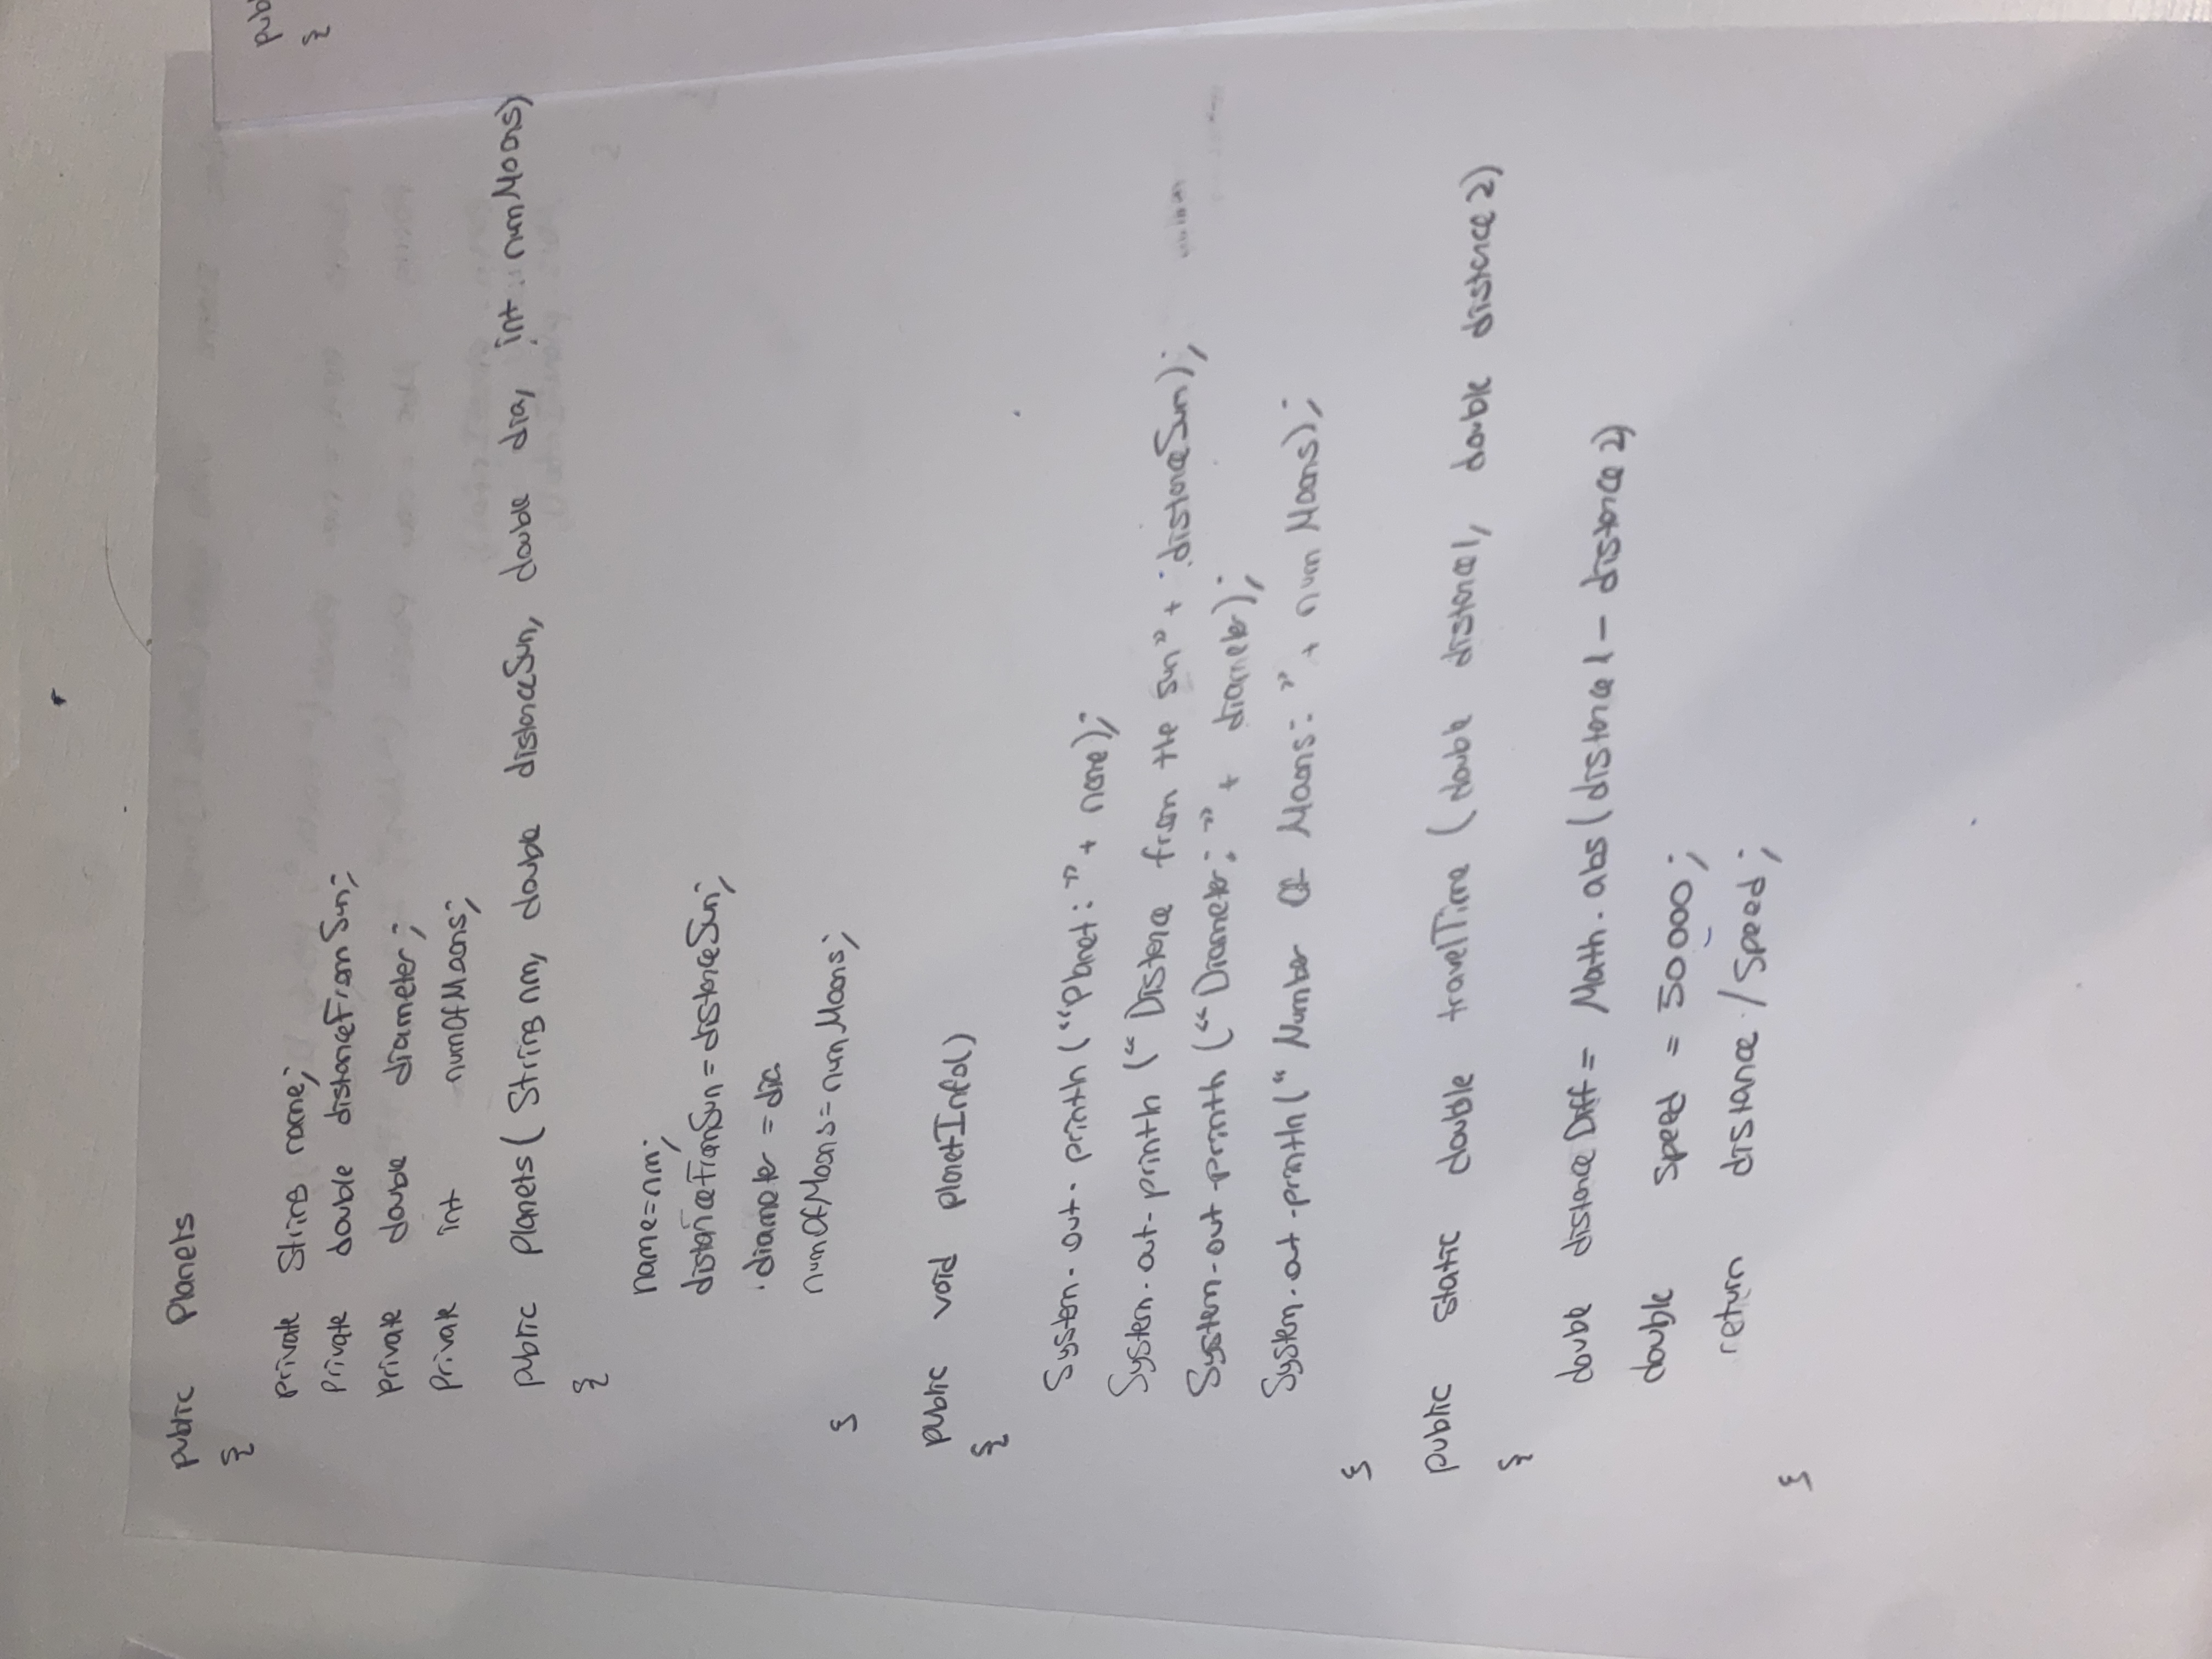 public Planets
{
private String name;
private double distanceFromSun;
private double diameter;
private int numOfMoons;
public Planets( String nm, double distanceSun, double dia, int numMoons)
{
name=nm;
distanceFromSun = distanceSun;
diameter = dia
numOfMoons = numMoons;
}
public void planetInfo()
{
System.out.println ("Planet: " + name);
System.out.println (" Distance from the sun" + distanceSun);
System.out.println (" Diameter: " + diameter);
System.out.println (" Number Of Moons: " + numMoons);
}
public static double travelTime ( double distance1, double distance2)
{
double distanceDiff = Math.abs(distance1 - distance2)
double speed = 50000;
return distance / speed;
}
pub
{